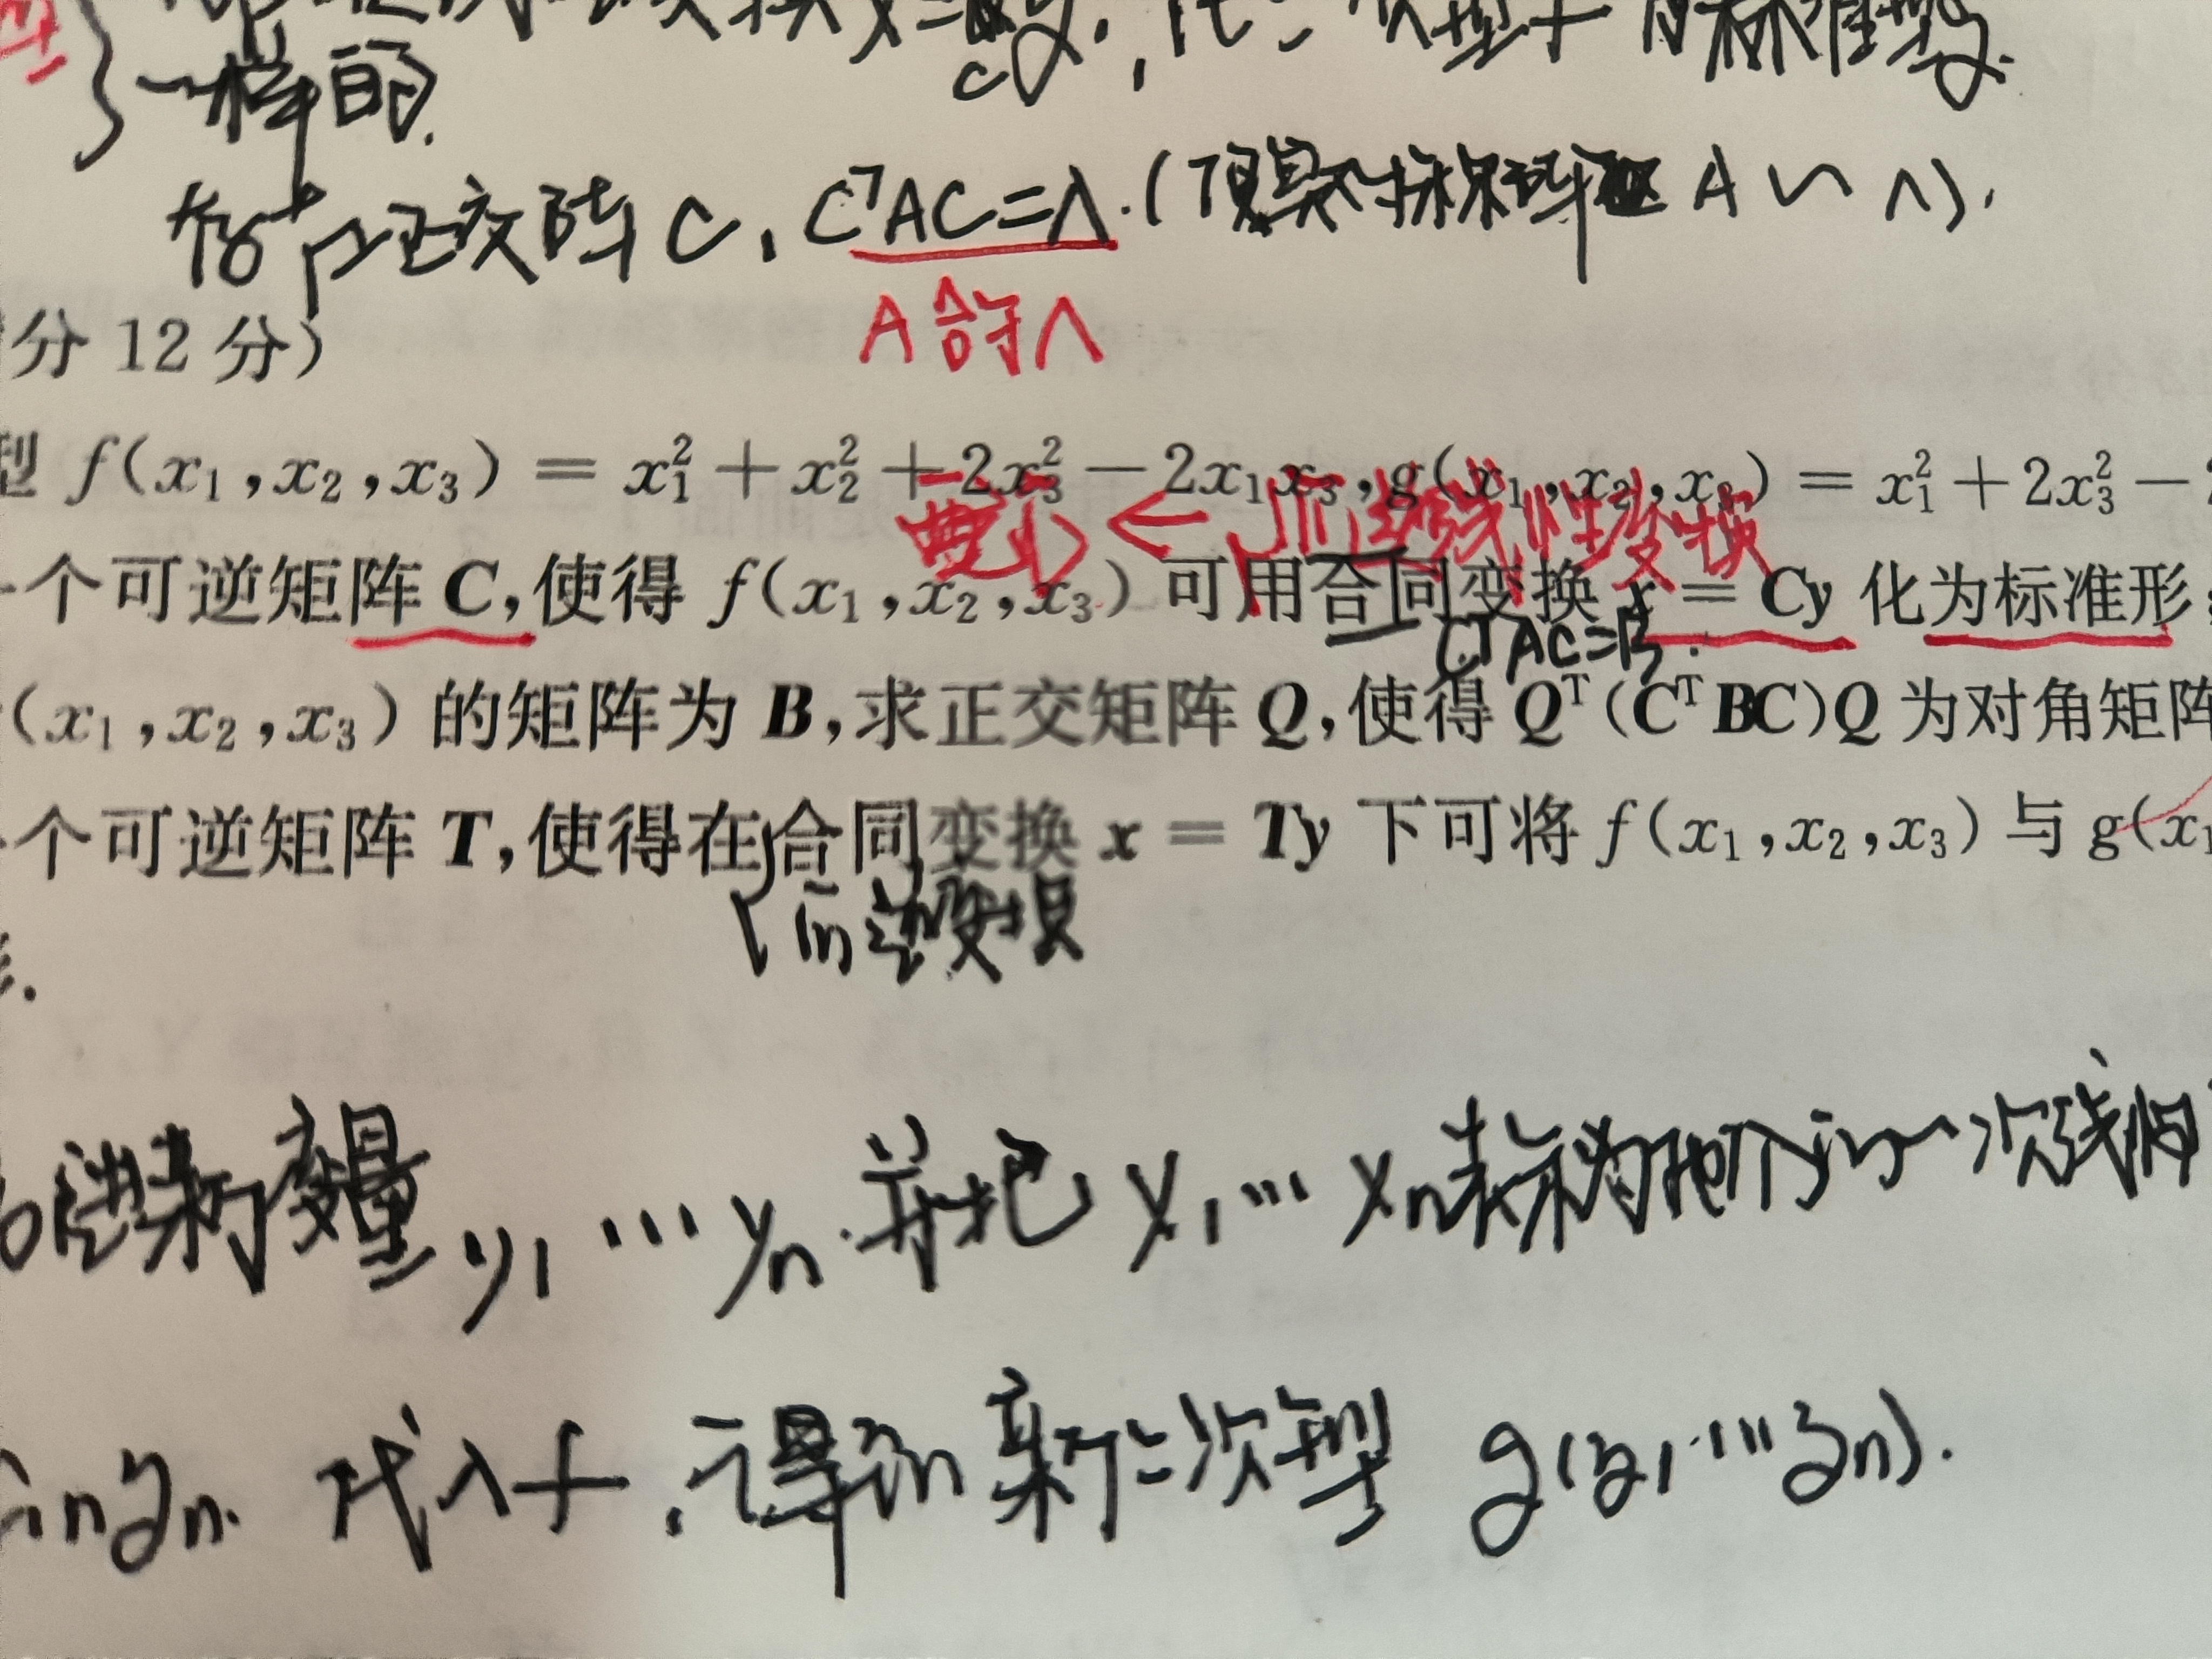 一样的.
存在正交阵 C, CᵀAC=Λ.(
A ∽ Λ).
A 合同 Λ
分 12 分)
型 f(x₁,x₂,x₃) = x₁² + x₂² + 2x₃² − 2x₁x₃, g(x₁,x₂,x₃) = x₁² + 2x₃² −
可逆线性变换
一个可逆矩阵 C,使得 f(x₁,x₂,x₃) 可用合同变换 x = Cy 化为标准形;
CᵀAC=B.
(x₁,x₂,x₃) 的矩阵为 B,求正交矩阵 Q,使得 Qᵀ(CᵀBC)Q 为对角矩阵
一个可逆矩阵 T,使得在合同变换 x = Ty 下可将 f(x₁,x₂,x₃) 与 g(x₁
可逆变换
新变量 y₁ … yₙ. 并把 x₁ … xₙ 表示为 一次线性
ᵢₙyₙ. 代入 f, 得到新二次型 g(y₁ … yₙ).